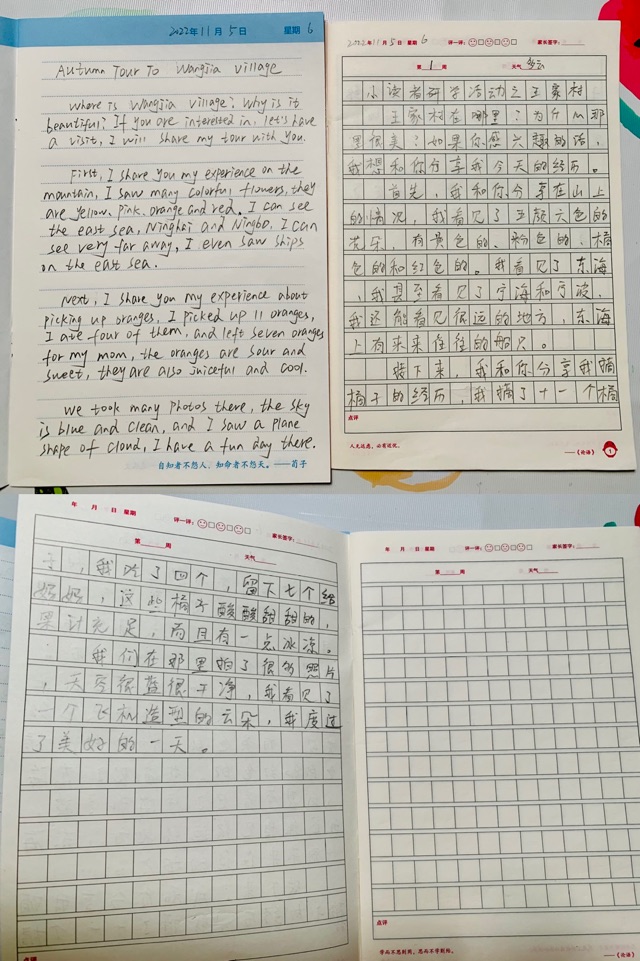 2022年11月5日 星期6
Autumn Tour To Wangjia village
where is Wangjia village? Why is it
beautiful? If you are interested in, let's have
a visit, I will share my tour with you.
First, I share you my experience on the
mountain, I saw many colorful flowers, they
are yellow, pink, orange and red. I can see
the east sea, Ninghai and Ningbo, I can
see very far away, I even saw ships
on the east sea.
Next, I share you my experience about
picking up oranges, I picked up 11 oranges,
I ate four of them, and left seven oranges
for my mom, the oranges are sour and
sweet, they are also juiceful and cool.
We took many photos there, the sky
is blue and clean, and I saw a plane
shape of cloud, I have a fun day there.
自知者不怨人,知命者不怨天。——荀子
2022年11月5日 星期 6 评一评: 家长签字:
第 1 周 天气 多云
小读者研学活动之王家村
王家村在哪里?为什么那
里很美?如果你感兴趣的话,
我想和你分享我今天的经历。
首先,我和你分享在山上
的情况,我看见了五颜六色的
花朵,有黄色的、粉色的、橘
色的和红色的。我看见了东海
,我甚至看见了宁海和宁波,
我还能看见很远的地方,东海
上有来来往往的船只。
接下来,我和你分享我摘
橘子的经历,我摘了十一个橘
点评
人无远虑,必有近忧。 ——《论语》 1
年 月 日 星期 评一评: 家长签字:
第 周 天气
子,我吃了四个,留下七个给
妈妈,这些橘子酸酸甜甜的,
果汁充足,而且有一点冰凉。
我们在那里拍了很多照片
,天空很蓝很干净,我看见了
一个飞机造型的云朵,我度过
了美好的一天。
点评
年 月 日 星期 评一评: 家长签字:
第 周 天气
点评
学而不思则罔,思而不学则殆。 ——《论语》